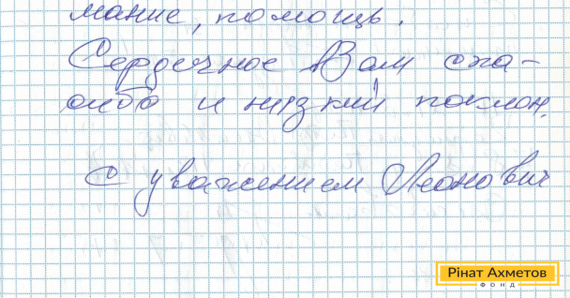 мание, помощь.
Сердечное Вам спа-
сибо и низкий поклон.
С уважением Леонович
Рінат Ахметов
ФОНД